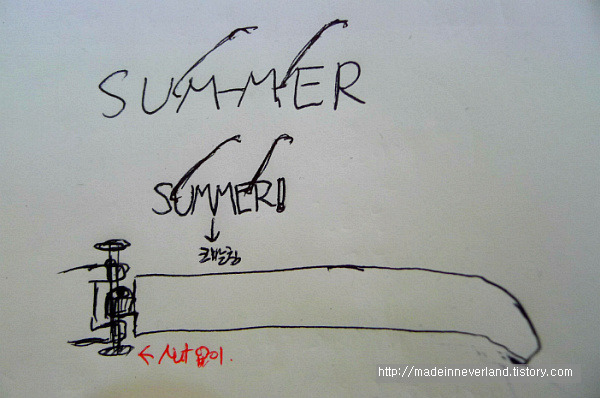 SUMMER
SUMMER!
코받침
없이.
http://madeinneverland.tistory.com